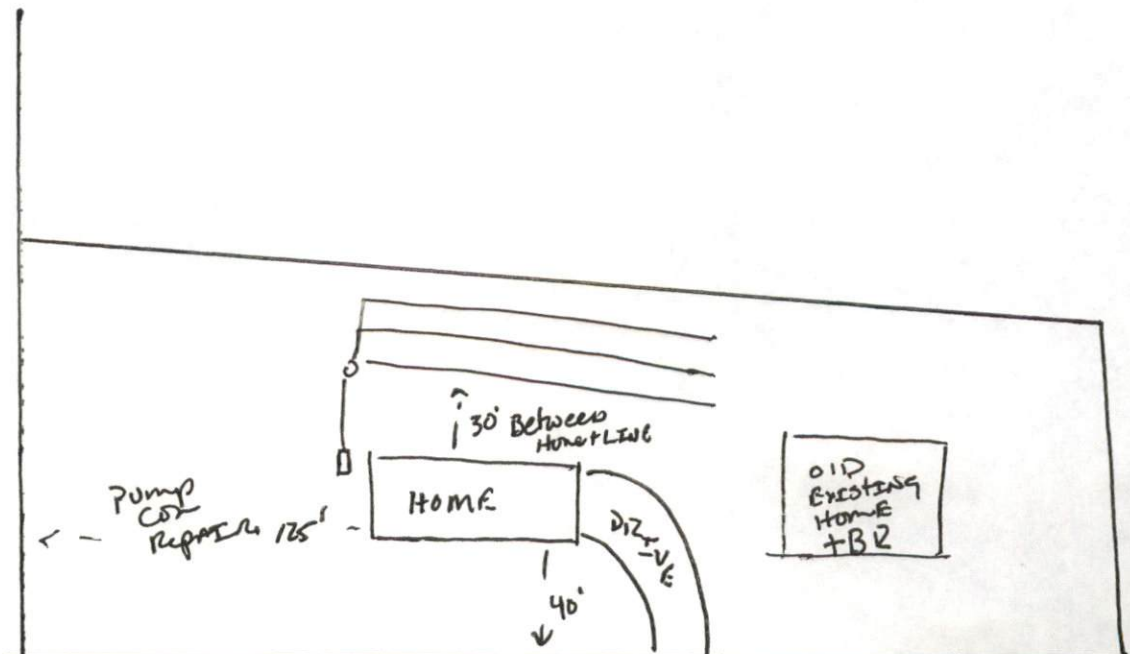 30' Between
Home + LINE
HOME
Pump
Repair 125'
DRIVE
40'
OLD
EXISTING
HOME